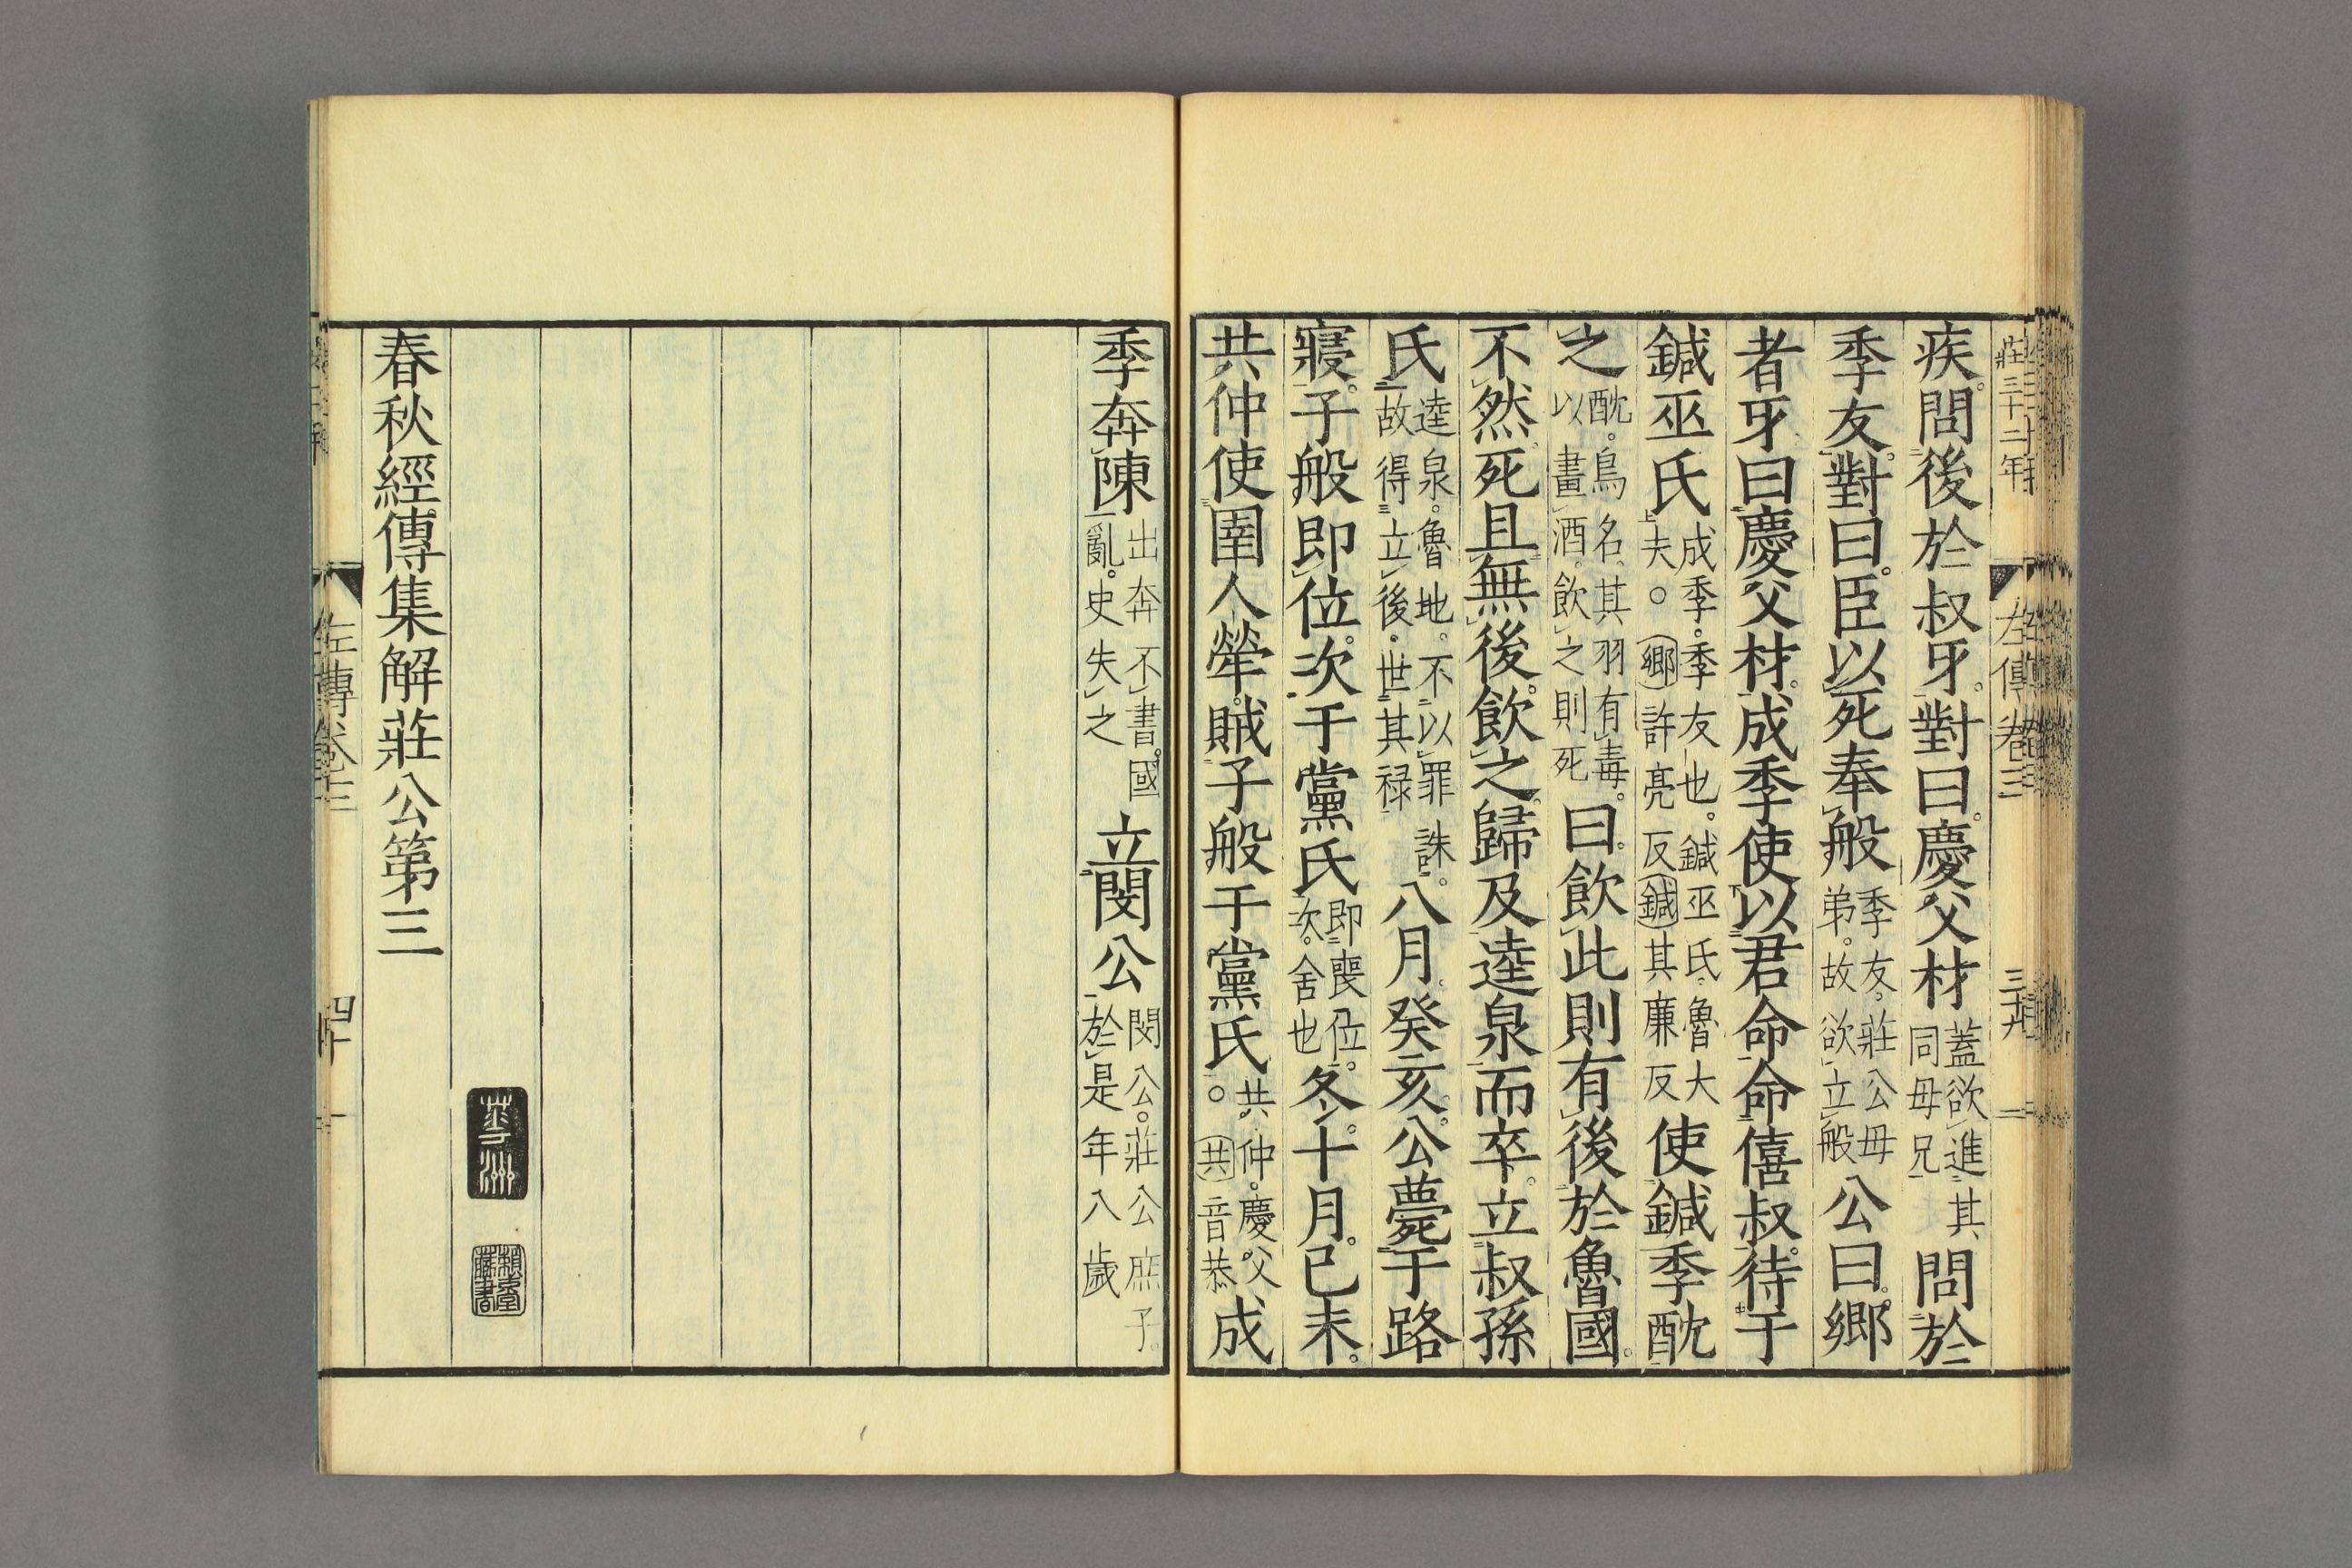 莊三十二年
左傳卷三
三十九
疾。問後於叔牙。對曰。慶父材蓋欲進其同母兄問於
季友。對曰。臣以死奉般季友。莊公母弟。故欲立般公曰。鄉
者牙曰慶父材。成季使以君命命僖叔。待于
鍼巫氏成季。季友也。鍼巫氏。魯大夫。○鄉許亮反鍼其廉反使鍼季酖
之酖。鳥名。其羽有毒。以畫酒。飲之則死曰。飲此則有後於魯國。
不然死且無後。飲之。歸及逵泉而卒。立叔孫
氏逵泉。魯地。不以罪誅。故得立後。世其祿八月。癸亥。公薨于路
寢。子般即位。次于黨氏即喪位。次。舍也冬。十月。己未。
共仲使圉人犖。賊子般于黨氏。共仲。慶父○共音恭成
季奔陳出奔不書。國亂。史失之立閔公閔公。莊公庶子。於是年八歲
春秋經傳集解莊公第三
左傳卷三
四十